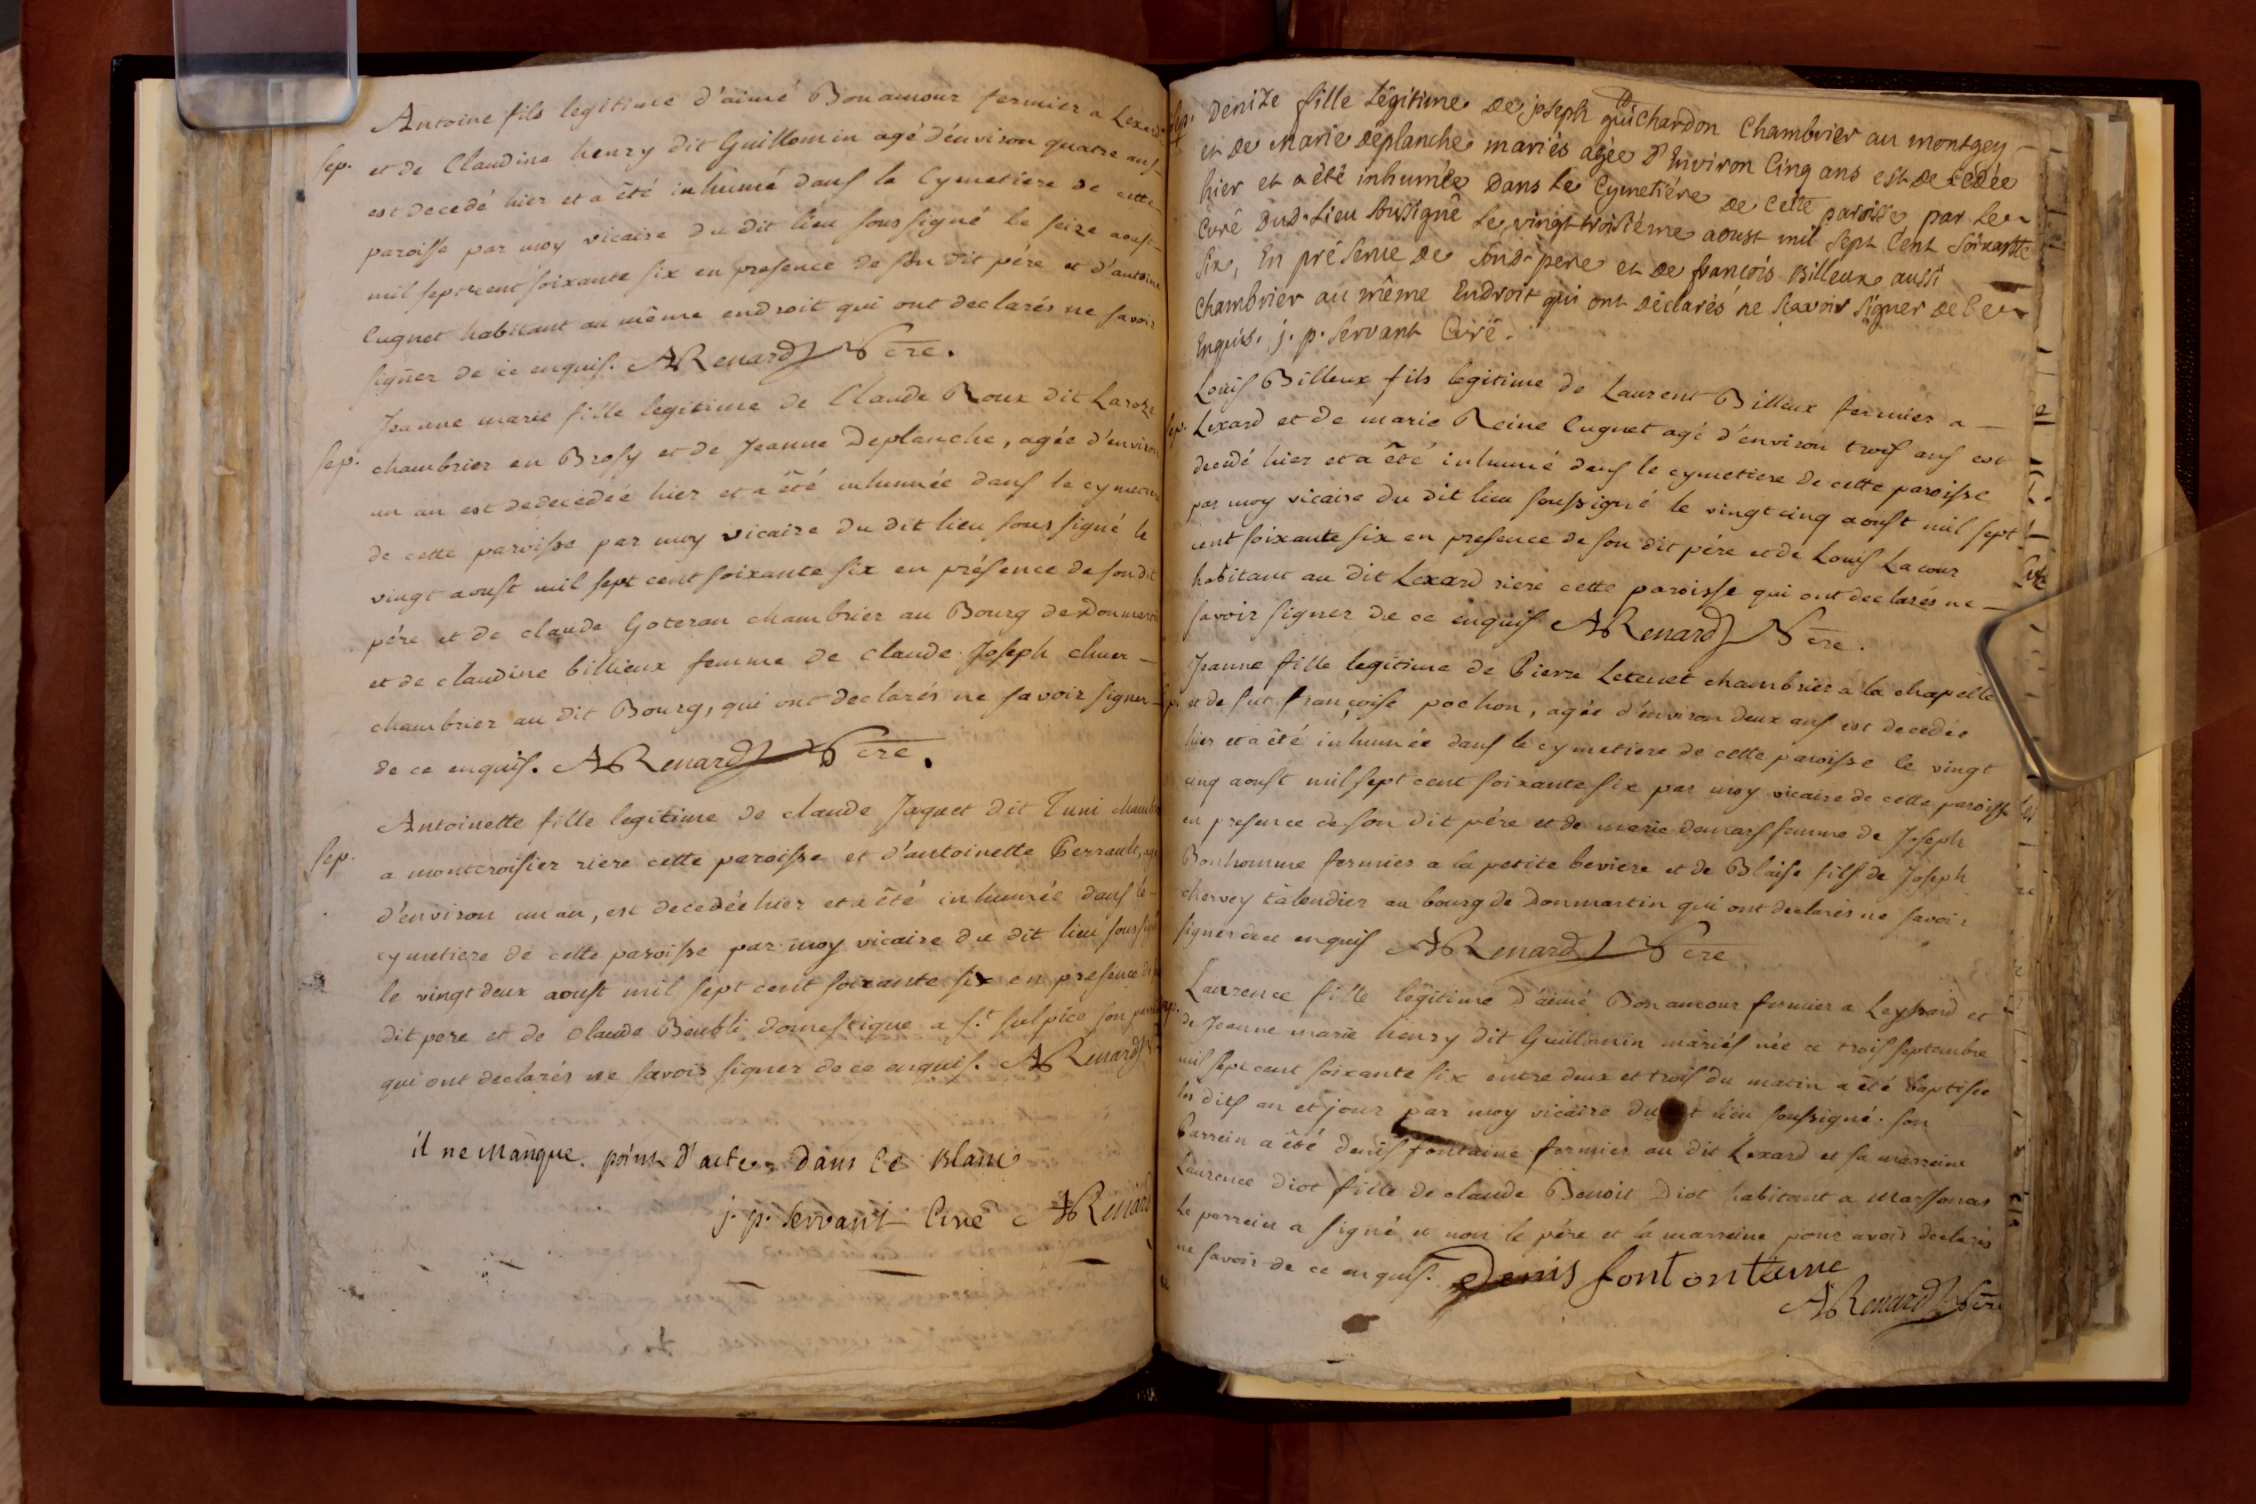 Antoine fils legitime d'aimé Bonamour fermier a Lexard
sep. et de Claudine henry dit Guillomin agé d'environ quatre ans
est decedé hier et a été inhumé dans le Cymetiere de cette
paroisse par moy vicaire du dit lieu soussigné le seize aoust
mil sept cent soixante six en presence de son dit pére et d'antoine
Cugnet habitant au même endroit qui ont declarés ne savoir
signer de ce enquis. ARenard Vcre.
Jeanne marie fille legitime de Claude Roux dit Laroze
sep. chambrier en Brosy et de Jeanne Deplanche, agée d'environ
un an est dedecedeé hier et a été inhumée dans le cymetiere
de cette paroisse par moy vicaire du dit lieu sous signé le
vingt aoust mil sept cent soixante six en présence de son dit
pére et de claude Goteran chambrier au Bourg de Donmartin
et de claudine billieux femme de claude Joseph chuer
chambrier au dit Bourg, qui ont declarés ne savoir signer
de ce enquis. ARenard Vcre.
Antoinette fille legitime de claude Jaquet dit Tuni chambrier
sep. a montcroisier riere cette paroisse et d'antoinette Perrault, agée
d'environ un an, est decedée hier et a été inhumée dans le
cymetiere de cette paroisse par moy vicaire du dit lieu soussigné
le vingt deux aoust mil sept cent soixante six en presence de son
dit pere et de claude Beubli domestique a st. sulpice son
qui ont declarés ne savoir signer de ce enquis. ARenard
il ne manque point d'actes dans ce blanc
j. p. servant Curé ARenard
sep. Denize fille Légitime de joseph guichardon Chambrier au montgey
et de Marie deplanche mariés agée d'Environ Cinq ans est decédée
hier et a été inhumée Dans Le Cymetiére de Cette paroisse par Le
Curé Dud. Lieu soussigné Le vingt-troisiéme aoust mil sept Cent soixante
six, En présence de sond. pere et de françois Billeux aussi
Chambrier au même Endroit qui ont déclarés ne sçavoir signer de Ce
Enquis. j. p. servant Curé.
Louis Billeux fils legitime de Laurent Billeux fermier a
sep. Lexard et de marie Reine Cugnet agé d'environ trois ans est
decedé hier et a été inhumé dans le cymetiere de cette paroisse
par moy vicaire du dit lieu soussigné le vingt cinq aoust mil sept
cent soixante six en presence de son dit pére et de Louis Lacour
habitant au dit Lexard riere cette paroisse qui ont declarés ne
savoir signer de ce enquis ARenard Vcre.
Jeanne fille legitime de Pierre Letenet chambrier a la chapelle
et de fut françoise pochon, agée d'environ deux ans est decedée
hier et a été inhumée dans le cymetiere de cette paroisse le vingt
cinq aoust mil sept cent soixante six par moy vicaire de cette paroisse
en presence de son dit pére et de marie demars femme de Joseph
Bonhomme fermier a la petite beviere et de Blaise fils de Joseph
chervey talendier au bourg de donmartin qui ont declarés ne savoir
signer de ce enquis ARenard Vcre
Laurence fille legitime d'aimé Bonamour fermier a Leyxard et
de Jeanne marie henry dit Guillomin mariés née ce trois septembre
mil sept cent soixante six entre deux et trois du matin a été baptisée
les dits an et jour par moy vicaire du dit lieu soussigné. son
Parrein a été denis fontaine fermier au dit Lexard et sa marreine
Laurence diot fille de claude Benoit Diot habitant a Marsonnas
Le parrein a signé et non le pére et la marreine pour avoir declarés
ne savoir de ce enquis. Denis fontontaine
ARenard Vcre